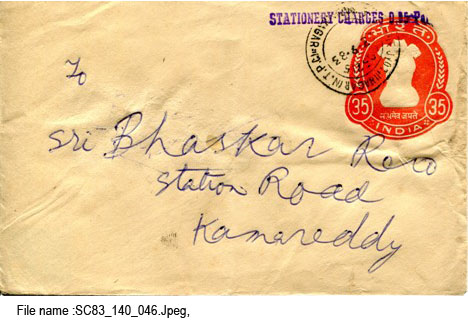 STATIONERY CHARGES 0.05 Pai
भारत
35 35
सत्यमेव जयते
INDIA
To
Sri Bhaskar Rao
Station Road
Kamareddy
File name :SC83_140_046.Jpeg,